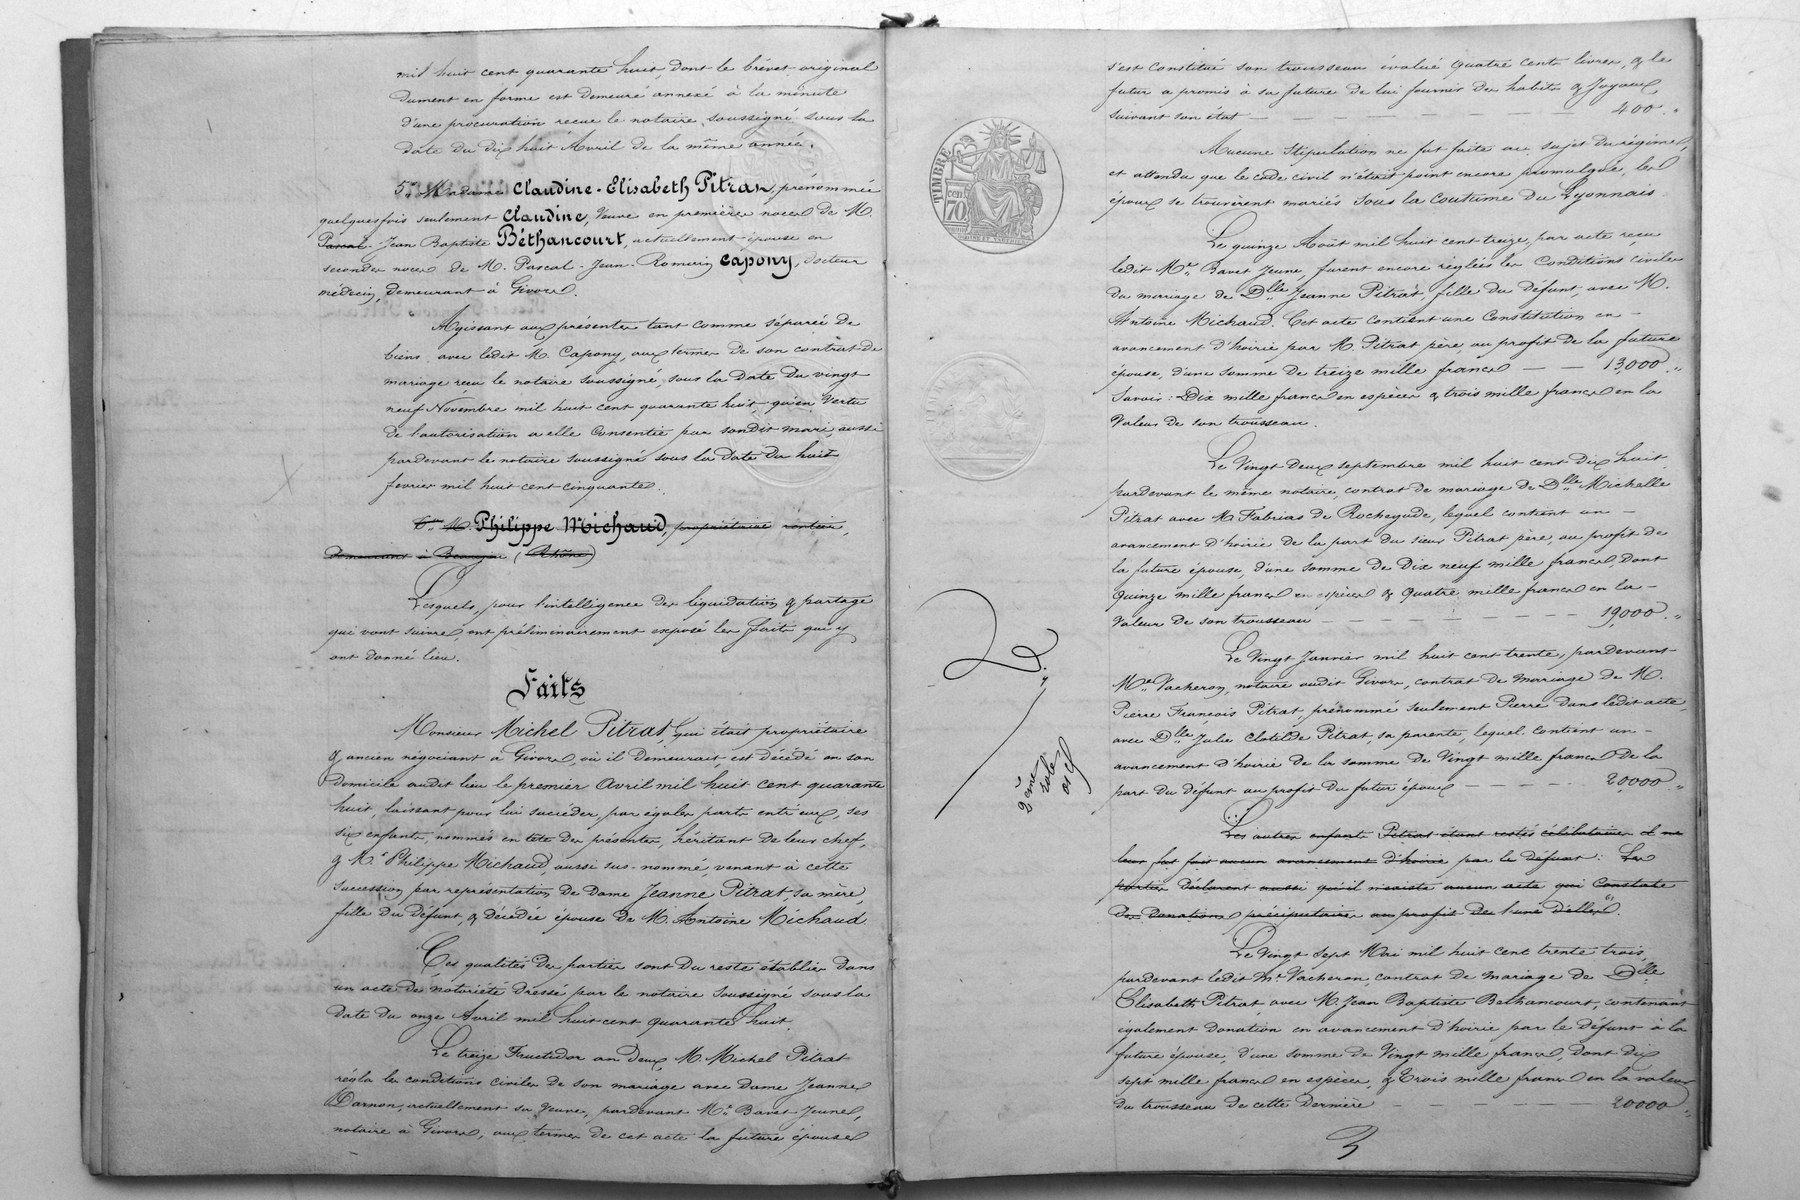 mil huit cent quarante huit, dont le brévet original
dument en forme est demeuré annexé à la minute
d'une procuration recue le notaire soussigné sous la
date du dix huit Avril de la même année.
5.º Madame Claudine-Elisabeth Pitrat, prénommée
quelquesfois seulement Claudine, Veuve en premières noces de M.
Pascal Jean Baptiste Béthancourt, actuellement épouse en
secondes noces de M. Pascal-Jean-Romain Capony, docteur
médecin, demeurant à Givors.
Agissant aux présentes tant comme séparée de
biens avec ledit M. Capony, aux termes de son contrat de
mariage reçu le notaire soussigné, sous la date du vingt
neuf Novembre mil huit cent quarante huit, qu'en Vertu
de l'autorisation a elle Consentie par sondit mari, aussi
pardevant le notaire soussigné sous la date du huit
fevrier mil huit cent cinquante.
6.º M. Philippe Michaud, propriétaire rentier,
demeurant à Beaujeu (Rhône)
Lesquels, pour l'intelligence des liquidation & partage
qui vont suivre, ont préliminairement exposé les faits qui y
ont donné lieu.
Faits
Monsieur Michel Pitrat, qui était propriétaire
& ancien négociant à Givors, où il demeurait, est décédé en son
domicile audit lieu le premier Avril mil huit cent quarante
huit, laissant pour lui succéder, par égales parts entr'eux, ses
six enfants, nommés en tête des présentes, héritant de leur chef,
& M.r Philippe Michaud, aussi sus-nommé, venant à cette
succession par représentation de Dame Jeanne Pitrat, sa mère,
fille du défunt, & décédée épouse de M. Antoine Michaud.
Ces qualités des parties sont du reste établies dans
un acte de notoriété dressé par le notaire soussigné sous la
date du onze Avril mil huit cent quarante huit.
Le treize Fructidor an deux, M. Michel Pitrat
régla les conditions civiles de son mariage avec Dame Jeanne
Darnon, actuellement sa veuve, pardevant M.e Bavet Jeune,
notaire à Givors, aux termes de cet acte la future épouse
s'est Constitué son trousseau évalué quatre cent livres, & le
futur a promis à sa future de lui fournir des habits & Joyaux
suivant son état — 400 "
Aucune Stipulation ne fut faite au sujet du régime,
et attendu que le code civil n'était point encore promulgué, les
époux se trouvèrent mariés sous la coutume du Lyonnais
Le quinze Août mil huit cent treize, par acte reçu
ledit M.e Bavet Jeune, furent encore réglées les Conditions civiles
du mariage de D.lle Jeanne Pitrat, fille du défunt, avec M.
Antoine Michaud. Cet acte contient une Constitution en
avancement d'hoirie par M. Pitrat père, au profit de la future
épouse, d'une somme de treize mille francs — 13,000 "
Savoir : Dix mille francs en espèces & trois mille francs en la
Valeur de son trousseau.
Le Vingt deux septembre mil huit cent dix huit
pardevant le même notaire, contrat de mariage de D.lle Michelle
Pitrat avec M. Fabrias de Rochegude, lequel contient un
avancement d'hoirie de la part du sieur Pitrat père, au profit de
la future épouse, d'une somme de Dix neuf mille francs, dont
quinze mille francs en espèces & quatre mille francs en la
Valeur de son trousseau — 19,000 "
Le Vingt Janvier mil huit cent trente, pardevant
M.e Vacheron, notaire audit Givors, contrat de mariage de M.
Pierre François Pitrat, prénommé seulement Pierre dans ledit acte,
avec D.lle Julie Clotilde Pitrat, sa parente, lequel contient un
avancement d'hoirie de la somme de Vingt mille francs de la
part du défunt au profit du futur époux — 20,000 "
Les autres enfants Pitrat étant restés célibataires il ne
leur fut fait aucun avancement d'hoirie par le défunt : Les
parties déclarent aussi qu'il n'existe aucun acte qui Constate
des Donations précipuitaires au profit de l'une d'elles.
Le Vingt sept Mai mil huit cent trente trois,
pardevant ledit M.e Vacheron, contrat de mariage de D.lle
Elisabeth Pitrat, avec M. Jean Baptiste Bethancourt, contenant
également donation en avancement d'hoirie par le défunt à la
future épouse, d'une somme de Vingt mille francs, dont dix
sept mille francs en espèces, & Trois mille francs en la valeur
du trousseau de cette dernière — 20000 "
3
TIMBRE
cen
70
2ème
rôle